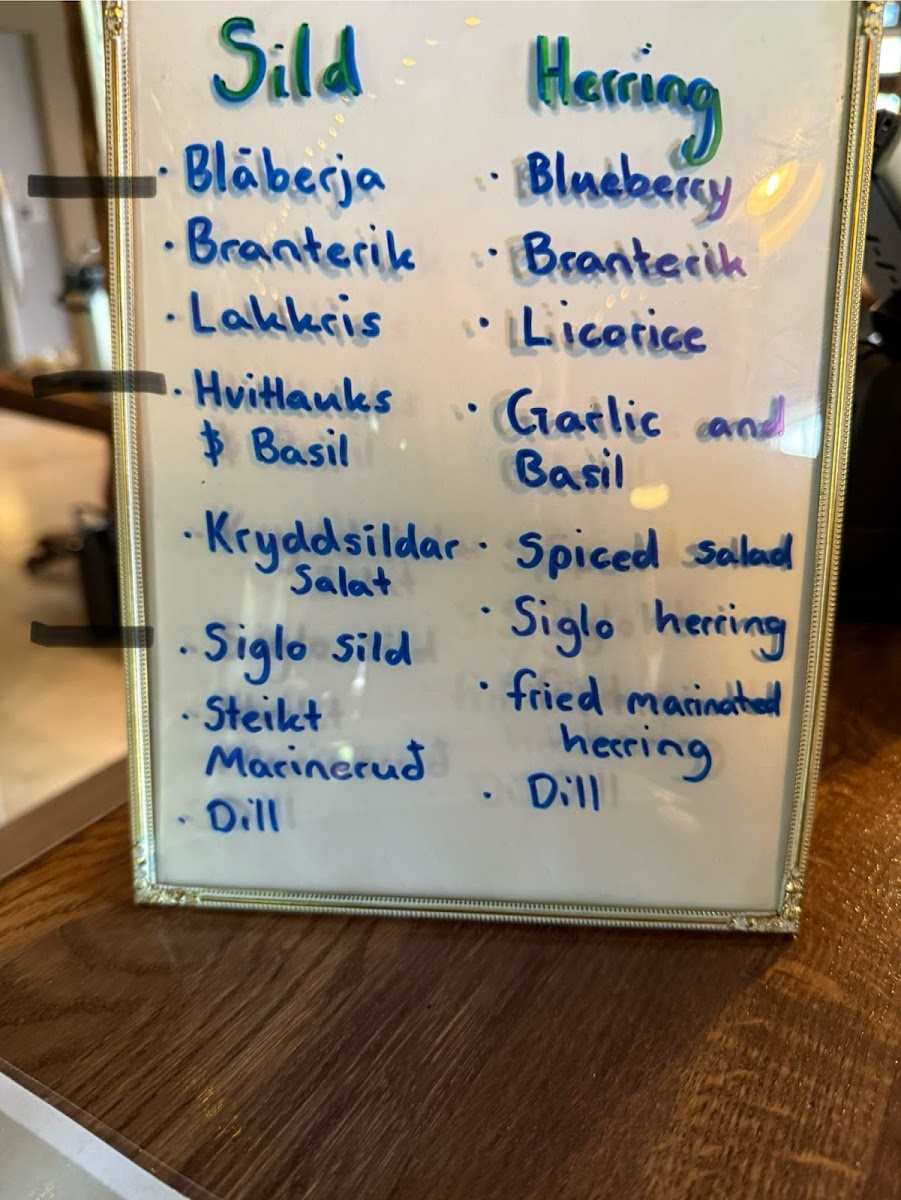 Sild
• Blāberja
• Branterik
• Lakkris
• Hvitlauks
$ Basil
• Kryddsildar
Salat
• Siglo sild
• Steikt
Marineruð
• Dill
Herring
• Blueberry
• Branterik
• Licorice
• Garlic and
Basil
• Spiced salad
• Siglo herring
• fried marinated
herring
• Dill